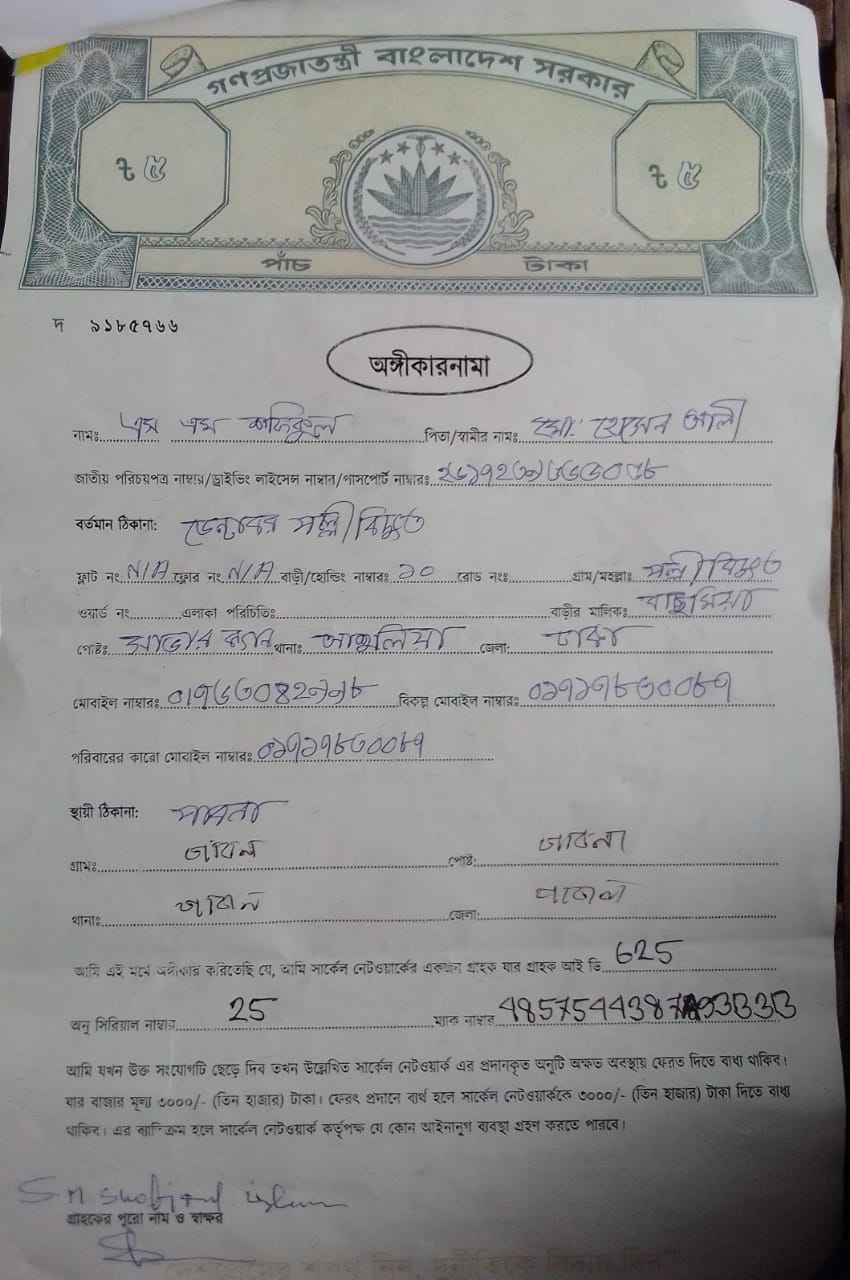 গণপ্রজাতন্ত্রী বাংলাদেশ সরকার
৳ ৫ ৳ ৫
পাঁচ টাকা
দ ৯১৮৫৭৬৬
অঙ্গীকারনামা
নামঃ এস এম শফিকুল পিতা/স্বামীর নামঃ মোঃ হোসেন আলী
জাতীয় পরিচয়পত্র নাম্বার/ড্রাইভিং লাইসেন্স নাম্বার/পাসপোর্ট নাম্বারঃ
বর্তমান ঠিকানা: পল্লী বিদ্যুত
ফ্লাট নং N/A ফ্লোর নং N/A বাড়ী/হোল্ডিং নাম্বারঃ ১০ রোড নংঃ গ্রাম/মহল্লাঃ পল্লী বিদ্যুত
ওয়ার্ড নং এলাকা পরিচিতিঃ বাড়ীর মালিকঃ বাচ্চু মিয়া
পোষ্টঃ সাভার ক্যান থানাঃ আশুলিয়া জেলা: ঢাকা
মোবাইল নাম্বারঃ বিকল্প মোবাইল নাম্বারঃ ০১৭১৭৮৩০০৮৭
পরিবারের কারো মোবাইল নাম্বারঃ ০১৭১৭৮৩০০৮৭
স্থায়ী ঠিকানা: পাবনা
গ্রামঃ পোষ্ট:
থানাঃ জেলা:
আমি এই মর্মে অঙ্গীকার করিতেছি যে, আমি সার্কেল নেটওয়ার্কের একজন গ্রাহক যার গ্রাহক আই ডি 625
অনু সিরিয়াল নাম্বার 25 ম্যাক নাম্বার
আমি যখন উক্ত সংযোগটি ছেড়ে দিব তখন উল্লেখিত সার্কেল নেটওয়ার্ক এর প্রদানকৃত অনুটি অক্ষত অবস্থায় ফেরত দিতে বাধ্য থাকিব।
যার বাজার মূল্য ৩০০০/- (তিন হাজার) টাকা। ফেরৎ প্রদানে ব্যর্থ হলে সার্কেল নেটওয়ার্ককে ৩০০০/- (তিন হাজার) টাকা দিতে বাধ্য
থাকিব। এর ব্যতিক্রম হলে সার্কেল নেটওয়ার্ক কর্তৃপক্ষ যে কোন আইনানুগ ব্যবস্থা গ্রহণ করতে পারবে।
S.M. Shofiqul islam
গ্রাহকের পুরো নাম ও স্বাক্ষর
"দেশপ্রেমের শপথ নিন, দুর্নীতিকে বিদায় দিন"